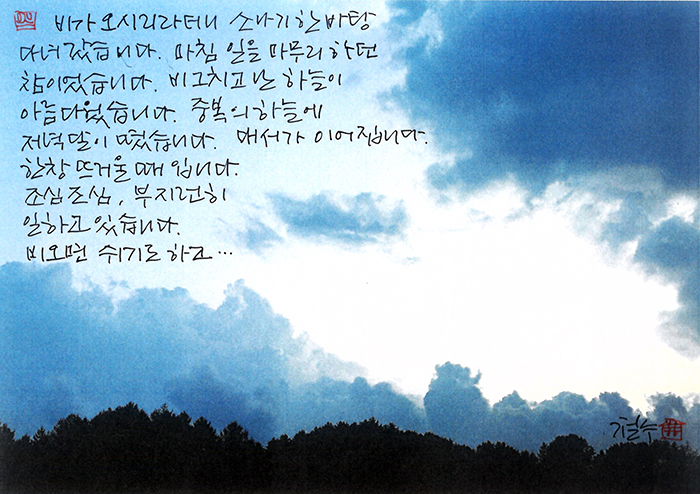 비가 오시리라더니 소나기 한바탕
다녀 갔습니다. 마침 일을 마무리 하던
참이었습니다. 비 그치고 난 하늘이
아름다웠습니다. 중복의 하늘에
저녁달이 떴습니다. 대서가 이어집니다.
한창 뜨거울 때 입니다.
조심조심, 부지런히
일하고 있습니다.
비오면 쉬기도 하고…
철수